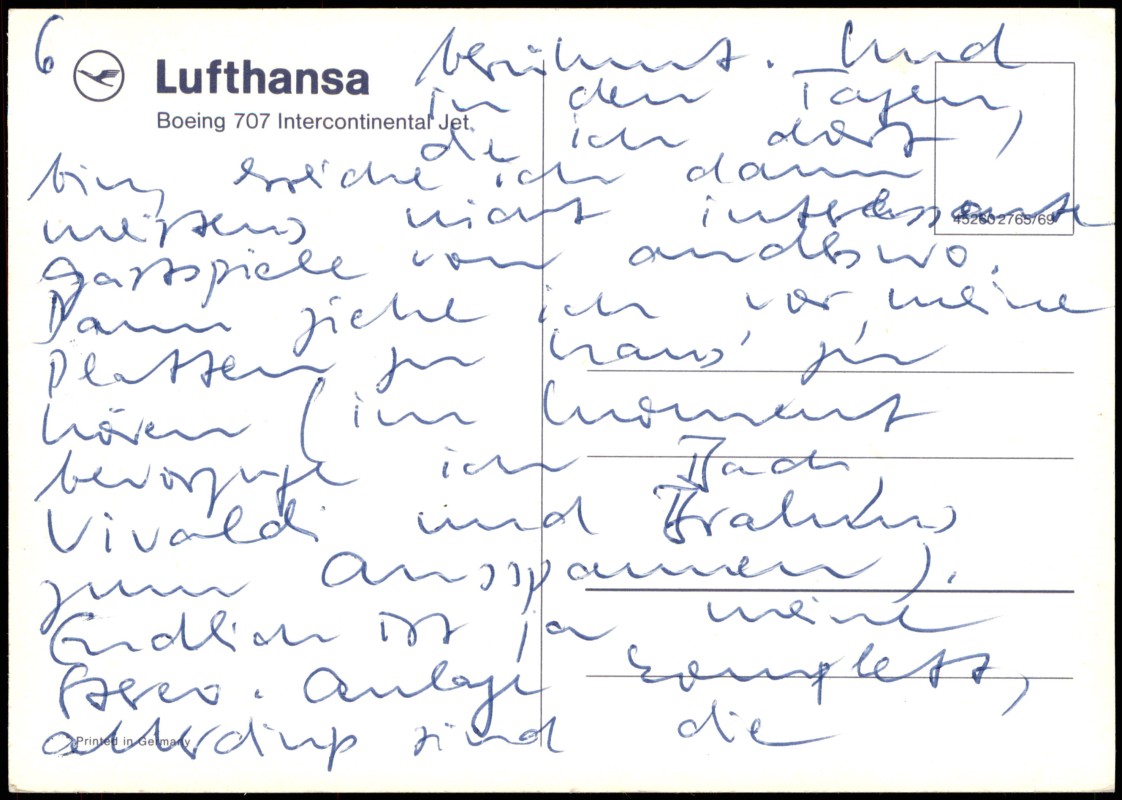 6
Lufthansa
Boeing 707 Intercontinental Jet
berühmt. Und
in den Tagen,
die ich dort
bin, ich dann
meistens nicht interessante
Gastspiele von anderswo.
Dann ziehe ich vor, meine
Platten zu haus' zu
hören (im Moment
bevorzuge ich Bach,
Vivaldi und Brahms
zum Ausspannen).
Endlich ist ja meine
Stereo-Anlage komplett,
allerdings sind die
452802765/69
Printed in Germany